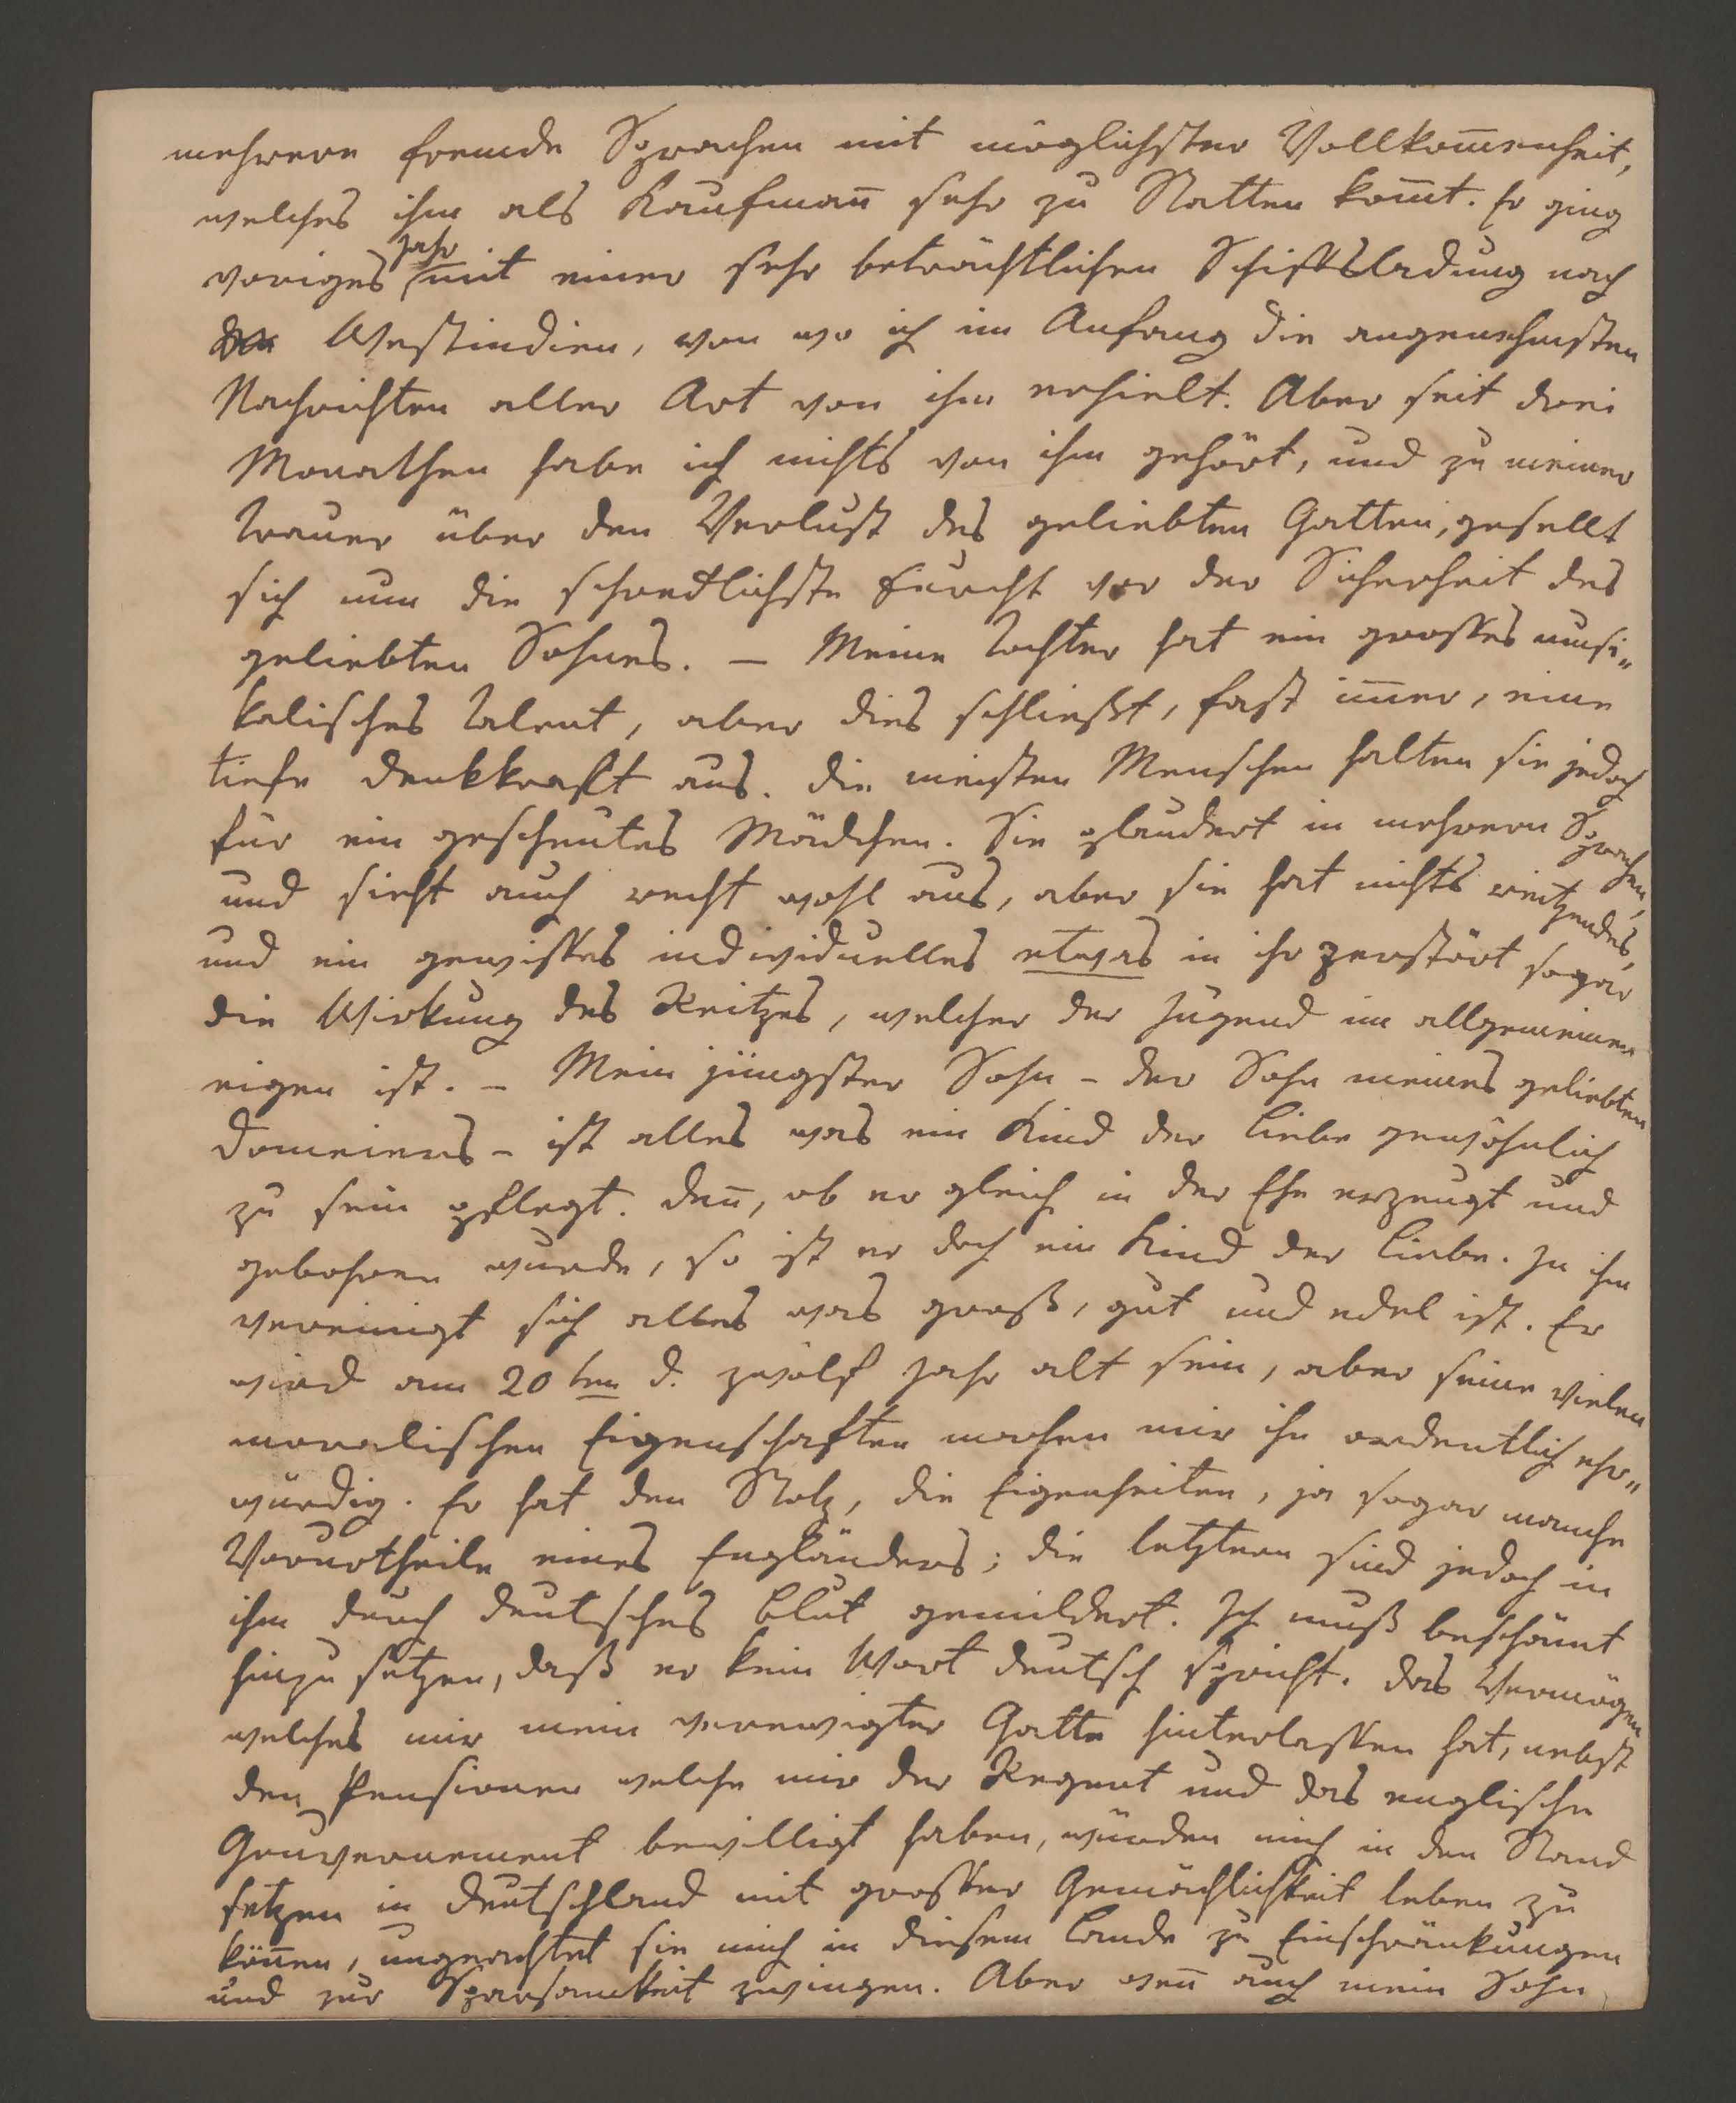 mehrere fremde Sprachen mit möglichster Vollkom̄enheit,
welches ihm als Kaufman̄ sehr zu Statten kom̄t. Er ging
voriges Jahr mit einer sehr beträchtlichen Schiffsladung nach
Westindien, von wo ich im Anfang die angenehmsten
Nachrichten aller Art von ihm erhielt. Aber seit drei
Monathen habe ich nichts von ihm gehört, und zu meiner
Trauer über den Verlust des geliebten Gatten, gesellt
sich nun die schrecklichste Furcht vor der Sicherheit des
geliebten Sohnes. – Meine Tochter hat ein grosses musi„
kalisches Talent, aber dies schließt, fast im̄er, eine
tiefe Denkkraft aus. Die meisten Menschen halten sie jedoch
für ein gescheutes Mädchen. Sie plaudert in mehrern Sprachen,
und sieht auch recht wohl aus, aber sie hat nichts reitzendes,
und ein gewisses individuelles etwas in ihr zerstört sogar
die Wirkung des Reitzes, welcher der Jugend im allgemeinen
eigen ist. – Mein jüngster Sohn – der Sohn meines geliebten
Domeiers – ist alles was ein Kind der Liebe gewöhnlich
zu sein pflegt. Den̄, ob er gleich in der Ehe erzeugt und
gebohren wurde, so ist er doch ein Kind der Liebe. In ihm
vereinigt sich alles was groß, gut und edel ist. Er
wird am 20ten d. zwölf Jahr alt sein, aber seine vielen
moralischen Eigenschaften machen mir ihn ordentlich ehr„
würdig. Er hat den Stolz, die Eigenheiten, ja sogar manche
Vorurtheile eines Engländers; die letztern sind jedoch in
ihm durch deutsches Blut gemildert. Ich muß beschämt
hinzu setzen, daß er kein Wort deutsch spricht. Das Vermögen
welches mir mein verewigter Gatte hinterlassen hat, nebst
den Pensionen welche mir der Regent und das englische
Gouvernement bewilligt haben, würden mich in den Stand
setzen in Deutschland mit grosser Gemächlichkeit leben zu
kön̄en, ungeachtet sie mich in diesem Lande zu Einschränkungen
und zur Sparsamkeit zwingen. Aber wen̄ auch mein Sohn